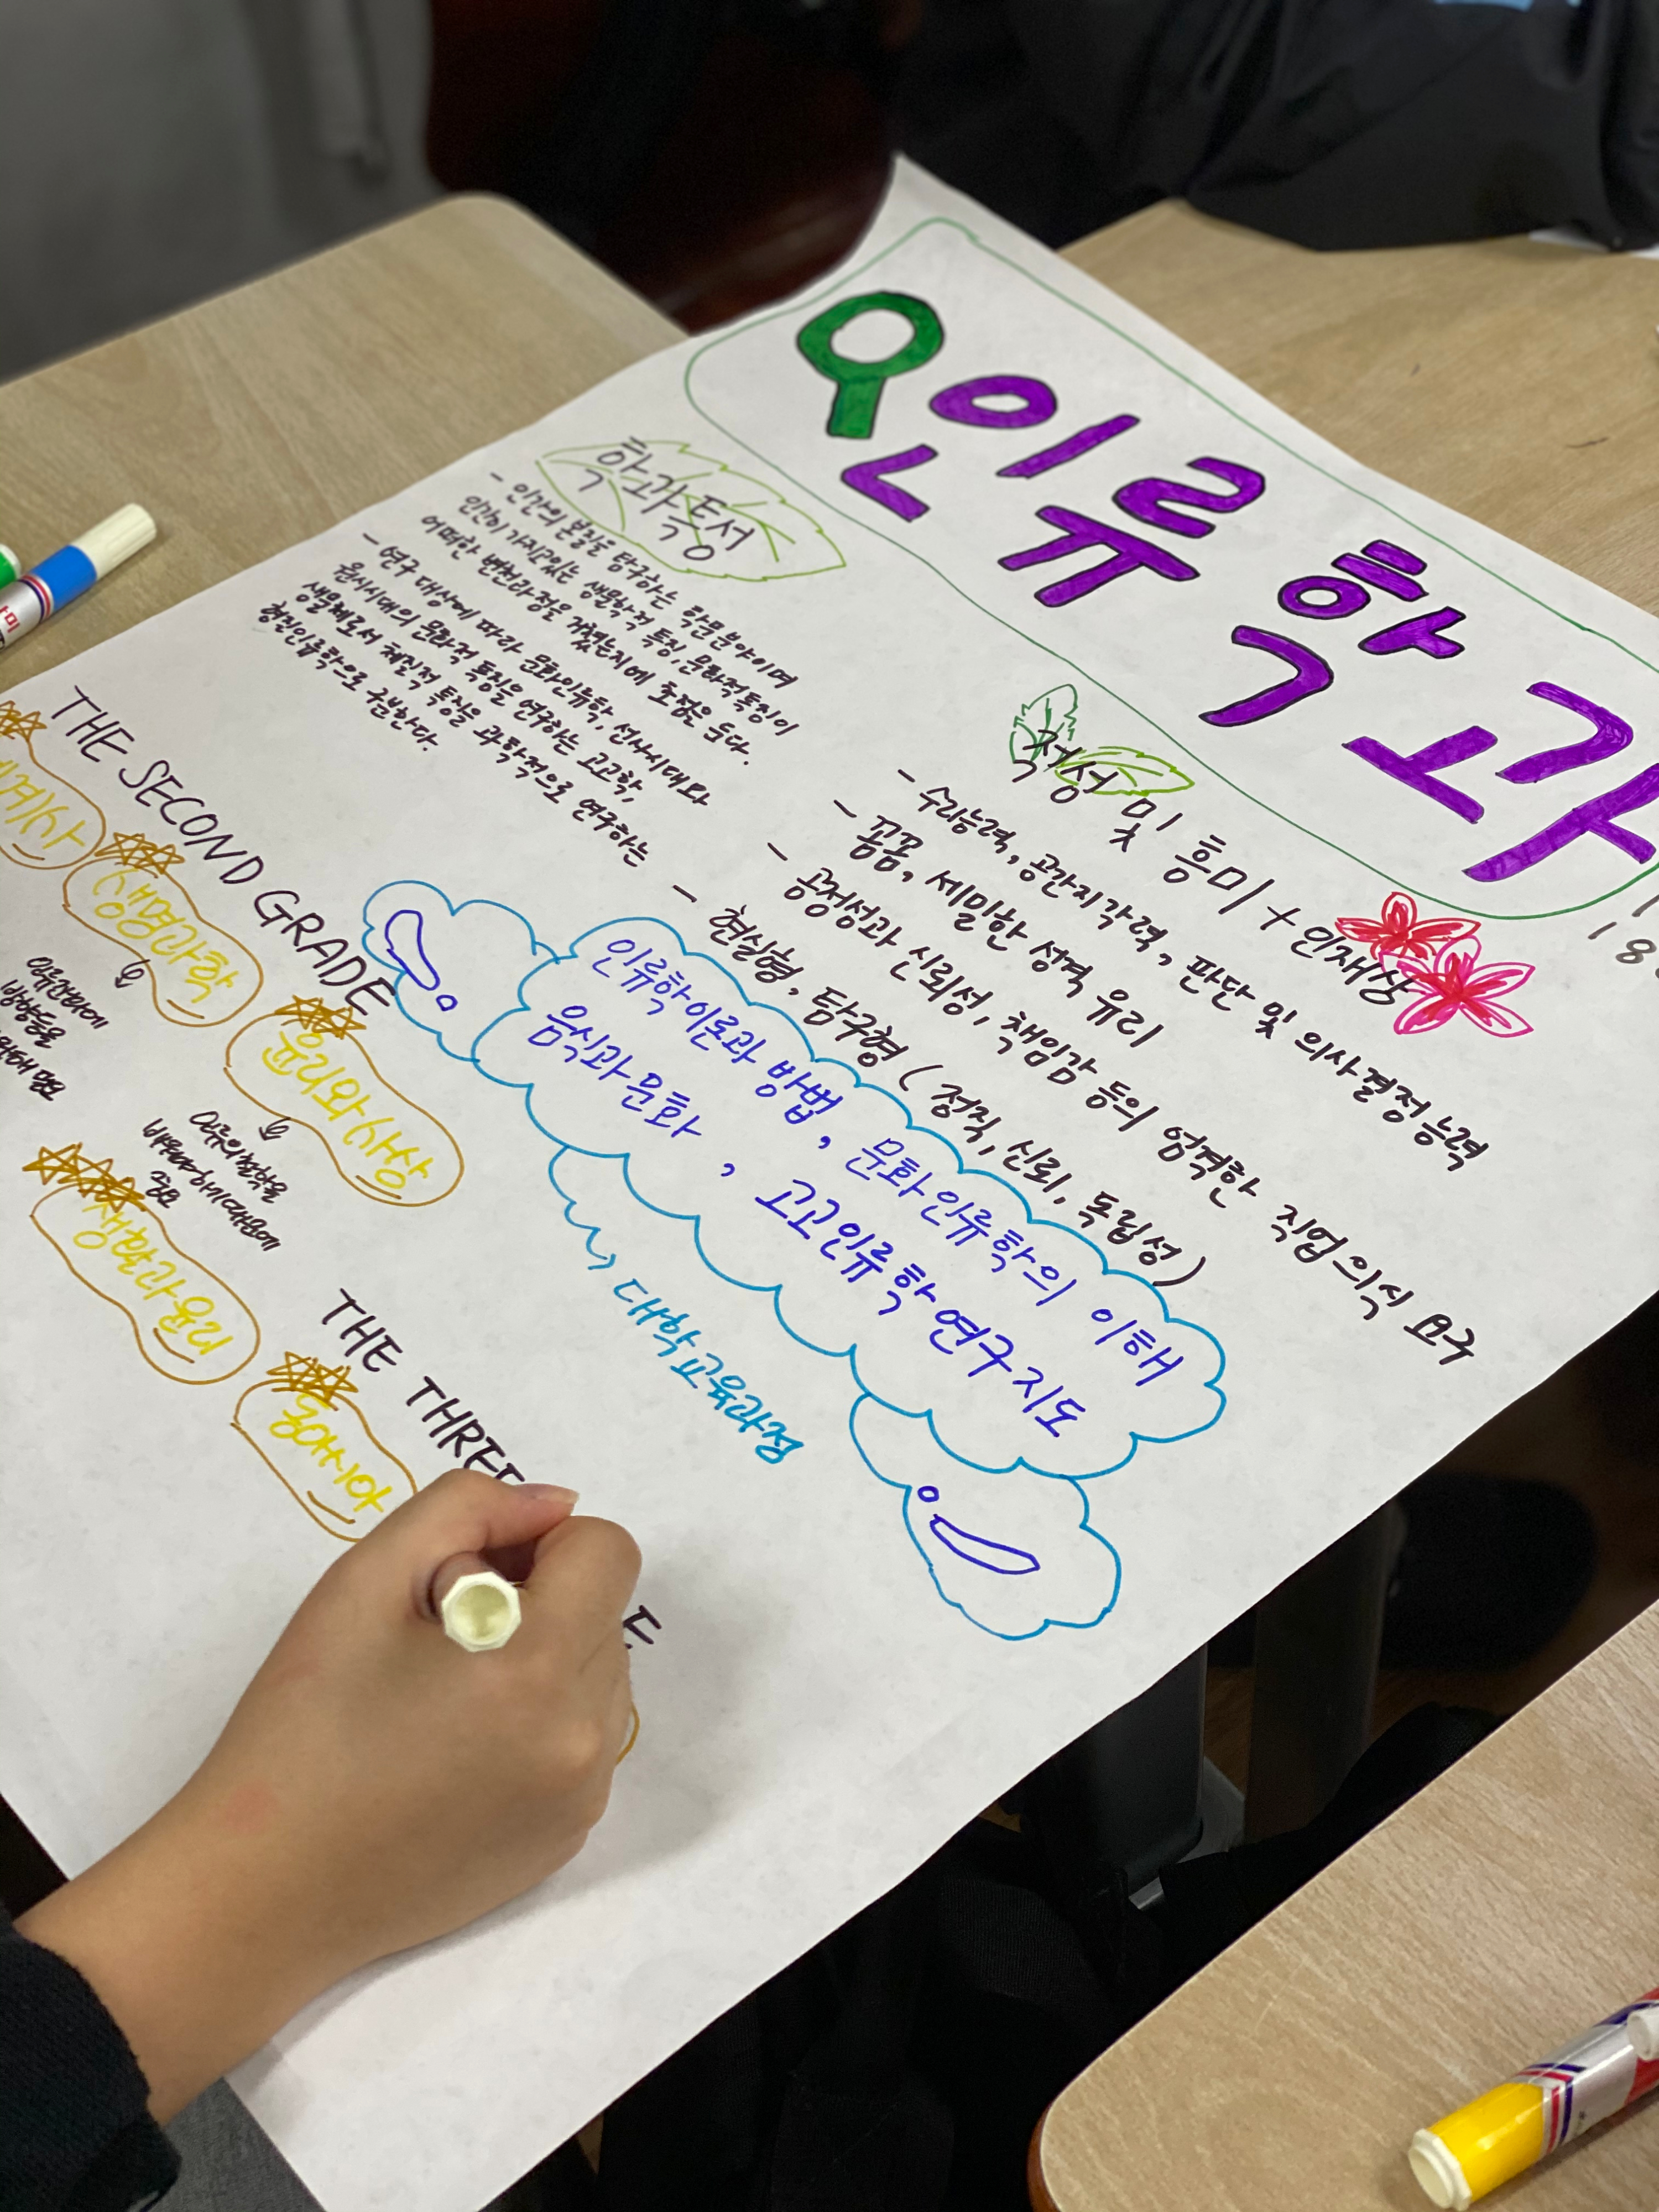 인류학과
학과특성
- 인간의 본질을 탐구하는 학문분야이며
인간이 가지고있는 생물학적 특징, 문화적특징이
어떠한 변천과정을 거쳤는지에 초점을 둔다.
- 연구 대상에 따라 문화인류학, 선사시대와
원시시대의 문화적 특징을 연구하는 고고학,
생물체로서 체질적 특징을 과학적으로 연구하는
형질인류학으로 구분한다.
적성 및 흥미 + 인재상
- 수리능력, 공간지각력, 판단 및 의사결정능력
- 꼼꼼, 세밀한 성격 유리
- 공정성과 신뢰성, 책임감 등의 엄격한 직업의식 요구
- 현실형, 탐구형 (정직, 신뢰, 독립성)
인류학이론과 방법, 문화인류학의 이해
음식과문화, 고고인류학연구지도
대학교육과정
THE SECOND GRADE
세계사
생명과학
윤리와사상
생활과윤리
THE THREE
동아시아